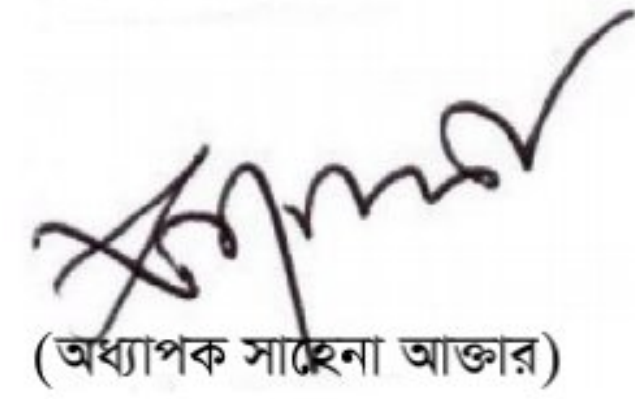 (অধ্যাপক সাহেনা আক্তার)